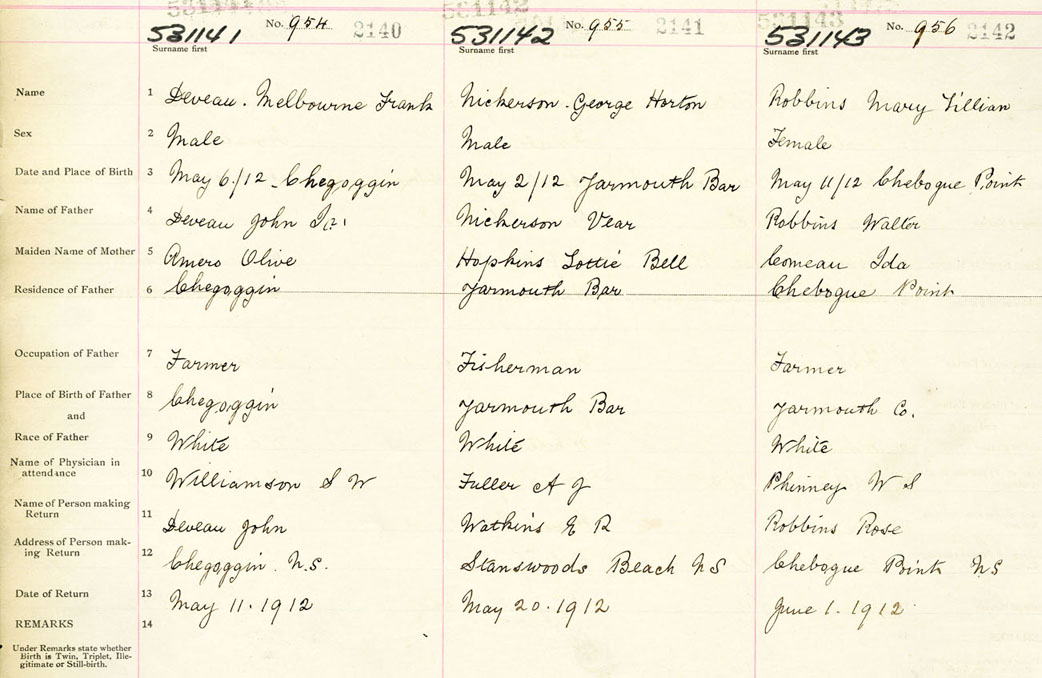 531141 No. 954 2140 531142 No. 955 2141 531143 No. 956 2142
Surname first Surname first Surname first
Name 1 Deveau. Melbourne Frank Nickerson. George Horton Robbins Mary Lillian
Sex 2 Male Male Female
Date and Place of Birth 3 May 6/12 Chegoggin May 2/12 Yarmouth Bar May 11/12 Chebogue Point
Name of Father 4 Deveau John Nickerson Vear Robbins Walter
Maiden Name of Mother 5 Amero Olive Hopkins Lottie Bell Comeau Ida
Residence of Father 6 Chegoggin Yarmouth Bar Chebogue Point
Occupation of Father 7 Farmer Fisherman Farmer
Place of Birth of Father 8 Chegoggin Yarmouth Bar Yarmouth Co.
and
Race of Father 9 White White White
Name of Physician in
attendance 10 Williamson S W Fuller A J Phinney W S
Name of Person making
Return 11 Deveau John Watkins E R Robbins Rose
Address of Person mak-
ing Return 12 Chegoggin. N.S. Stanswoods Beach N S Chebogue Point N S
Date of Return 13 May 11. 1912 May 20. 1912 June 1. 1912
REMARKS 14
Under Remarks state whether
Birth is Twin, Triplet, Ille-
gitimate or Still-birth.